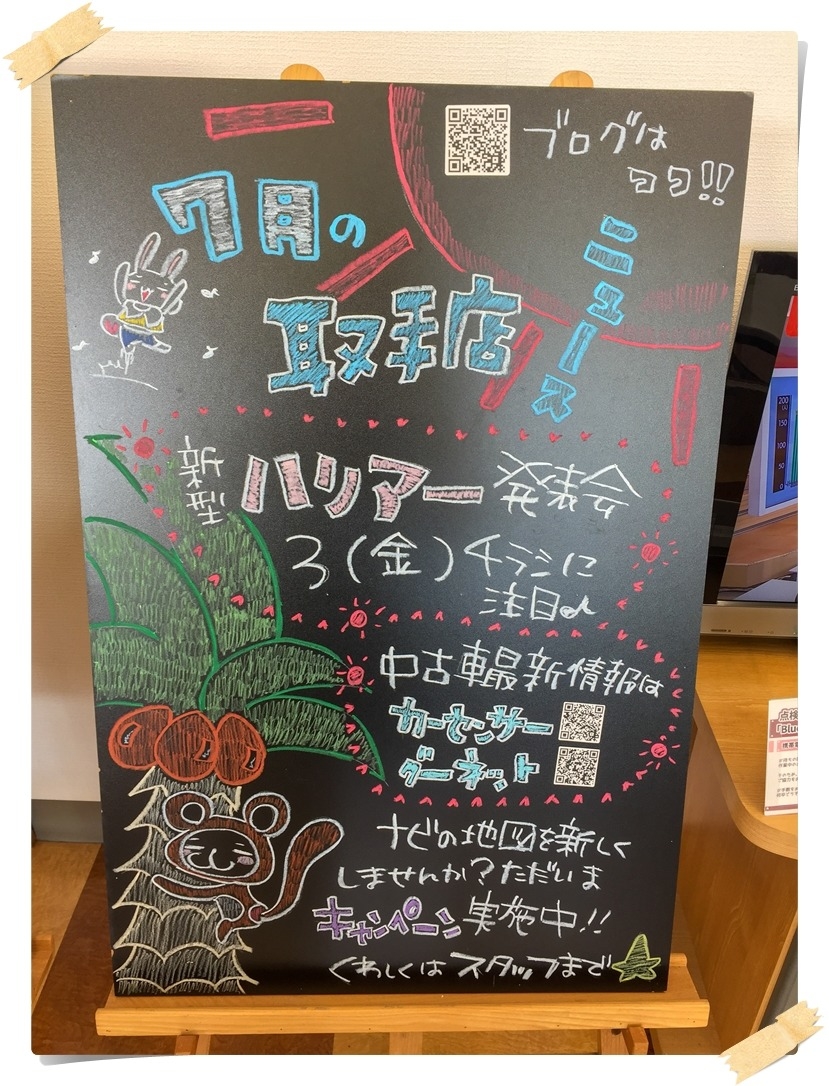 ブログは
ココ!!
7月の
取手店
ニュース
新型 ハリアー 発表会
3(金)チラシに
注目♪
中古車最新情報は
カーセンサー
グーネット
ナビの地図を新しく
しませんか?ただいま
キャンペーン実施中!!
くわしくはスタッフまで☆
200
150
100
50